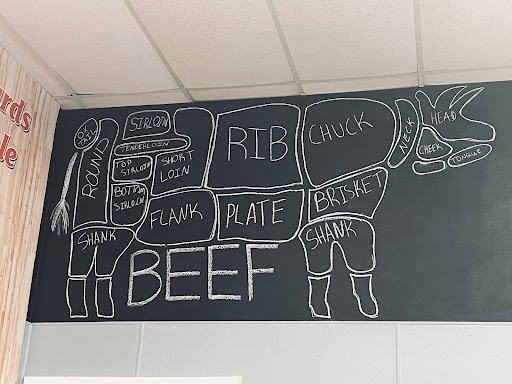 ards
le
OX
TAIL
ROUND
SIRLOIN
TENDERLOIN
TOP
SIRLOIN
BOTTOM
SIRLOIN
SHORT
LOIN
RIB
CHUCK
NECK
HEAD
CHEEK
TONGUE
FLANK
PLATE
BRISKET
SHANK
SHANK
BEEF